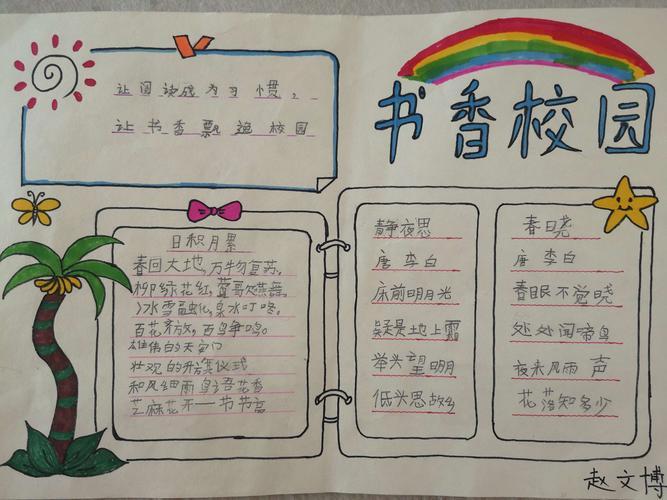 书香校园
让阅读成为习惯，
让书香飘逸校园
日积月累
春回大地,万物复苏。
柳绿花红,莺歌燕舞。
冰雪融化,泉水叮咚。
百花齐放,百鸟争鸣。
雄伟的天安门
壮观的升旗仪式
和风细雨鸟语花香
芝麻花开一节节高
静夜思
唐 李白
床前明月光
疑是地上霜
举头望明月
低头思故乡
春日晓
唐 李白
春眠不觉晓
处处闻啼鸟
夜来风雨声
花落知多少
赵文博